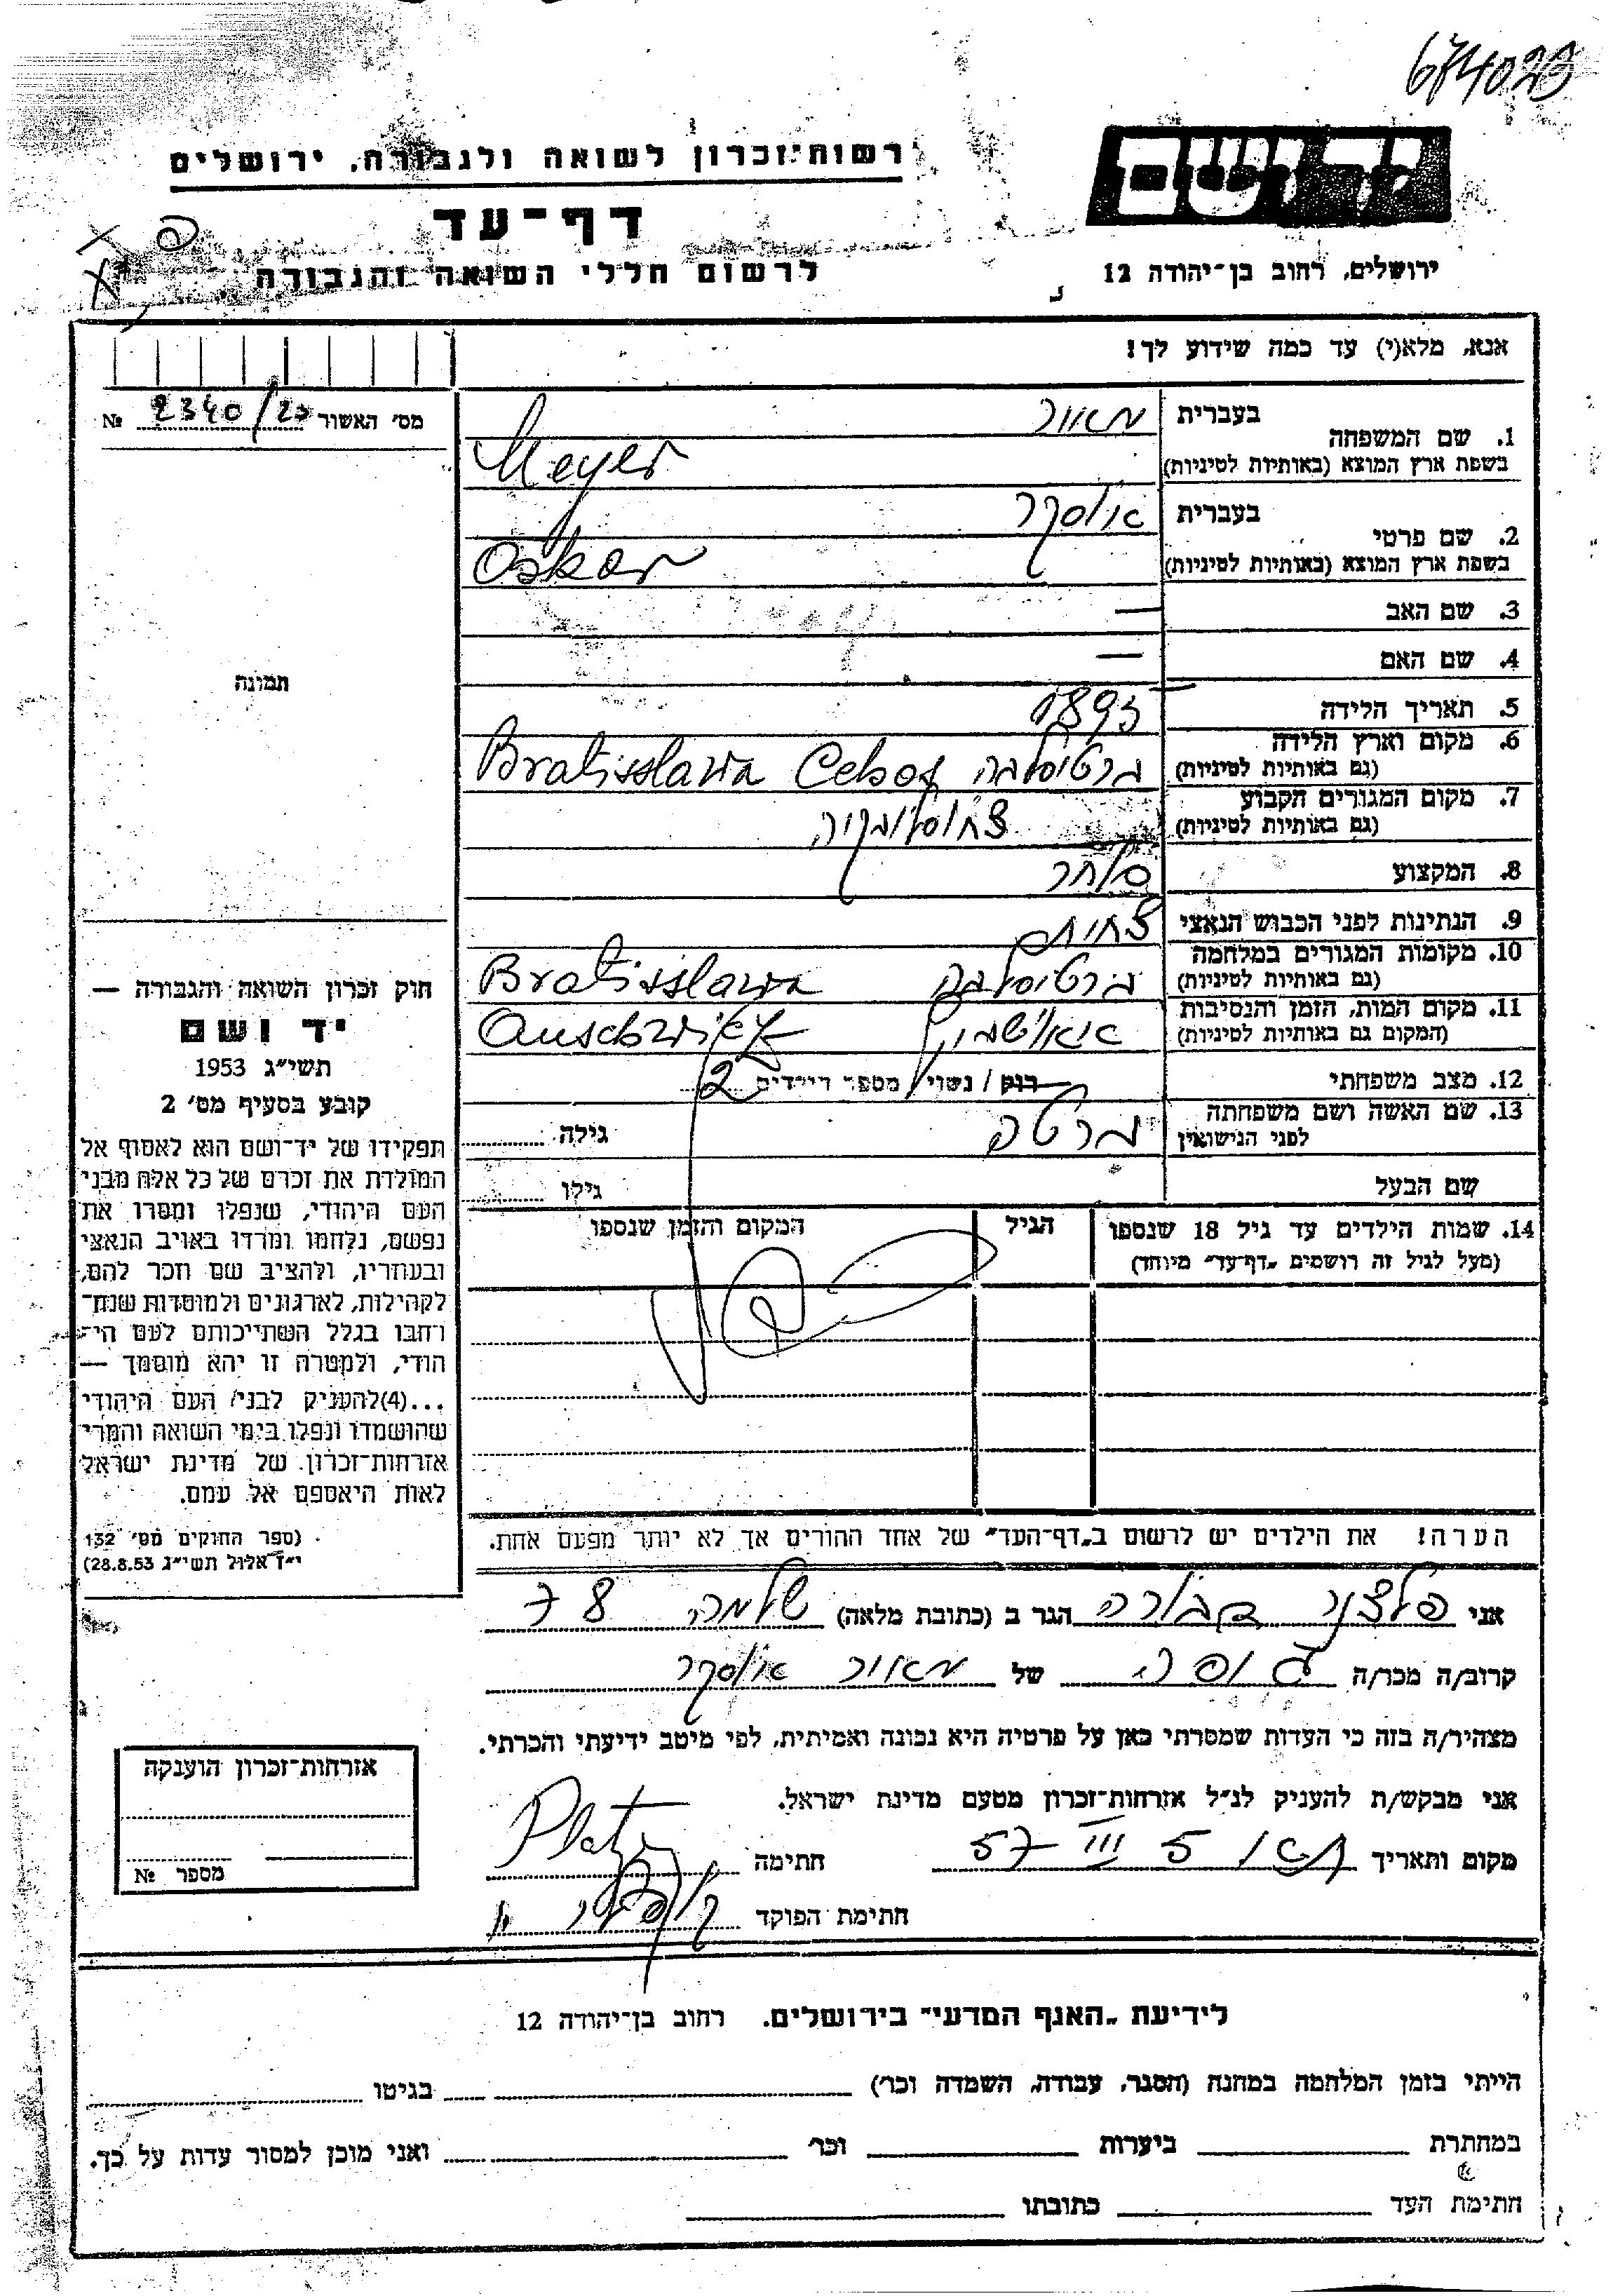 674023
יד ושם
רשות־זכרון לשואה ולגבורה, ירושלים
דף־עד
לרשום חללי השואה והגבורה
ירושלים, רחוב בן־יהודה 12
אנא, מלא(י) עד כמה שידוע לך!
מס' האשור 2340/20 №
1. שם המשפחה בעברית מאור
בשפת ארץ המוצא (באותיות לטיניות) Meyer
2. שם פרטי בעברית אוסקר
בשפת ארץ המוצא (באותיות לטיניות) Oskar
3. שם האב —
4. שם האם —
תמונה
5. תאריך הלידה 1895
6. מקום וארץ הלידה
(גם באותיות לטיניות) ברטיסלבה Bratisslawa
7. מקום המגורים הקבוע
(גם באותיות לטיניות) צ'כוסלובקיה
8. המקצוע סוחר
9. הנתינות לפני הכבוש הנאצי
10. מקומות המגורים במלחמה
(גם באותיות לטיניות) ברטיסלבה Bratisslawa
11. מקום המות, הזמן והנסיבות
(המקום גם באותיות לטיניות) אאושביץ Auschwitz
12. מצב משפחתי רוק / נשוי / מספר הילדים 2
13. שם האשה ושם משפחתה
לפני הנישואין ברטה גילה
שם הבעל גילו
14. שמות הילדים עד גיל 18 שנספו הגיל המקום והזמן שנספו
(מעל לגיל זה רושמים „דף־עד" מיוחד)
חוק זכרון השואה והגבורה —
יד ושם
תשי"ג 1953
קובע בסעיף מס' 2
תפקידו של יד־ושם הוא לאסוף אל
המולדת את זכרם של כל אלה מבני
העם היהודי, שנפלו ומסרו את
נפשם, נלחמו ומרדו באויב הנאצי
ובעוזריו, ולהציב שם וזכר להם,
לקהילות, לארגונים ולמוסדות שנח־
רחבו בגלל השתייכותם לעם הי־
הודי, ולמטרה זו יהא מוסמך —
...(4)להעניק לבני העם היהודי
שהושמדו ונפלו בימי השואה והמרי
אזרחות־זכרון של מדינת ישראל
לאות היאספם אל עמם.
(ספר החוקים מס' 132
י"ז אלול תשי"ג 28.8.53)
הערה! את הילדים יש לרשום ב„דף־העד" של אחד ההורים אך לא יותר מפעם אחת.
אני פלצנר דבורה הגר ב (כתובת מלאה) שלמה 78
קרוב/ה מכר/ה גיסה של מאור אוסקר
מצהיר/ה בזה כי העדות שמסרתי כאן על פרטיה היא נכונה ואמיתית, לפי מיטב ידיעתי והכרתי.
אני מבקש/ת להעניק לנ"ל אזרחות־זכרון מטעם מדינת ישראל.
מקום ותאריך תא 5 III 57 חתימה
חתימת הפוקד
אזרחות־זכרון הוענקה
מספר №
לידיעת „האגף המדעי" בירושלים. רחוב בן־יהודה 12
הייתי בזמן המלחמה במחנה (הסגר, עבודה, השמדה וכו') בגיטו
במחתרת ביערות וכו' ואני מוכן למסור עדות על כך.
חתימת העד כתובתו